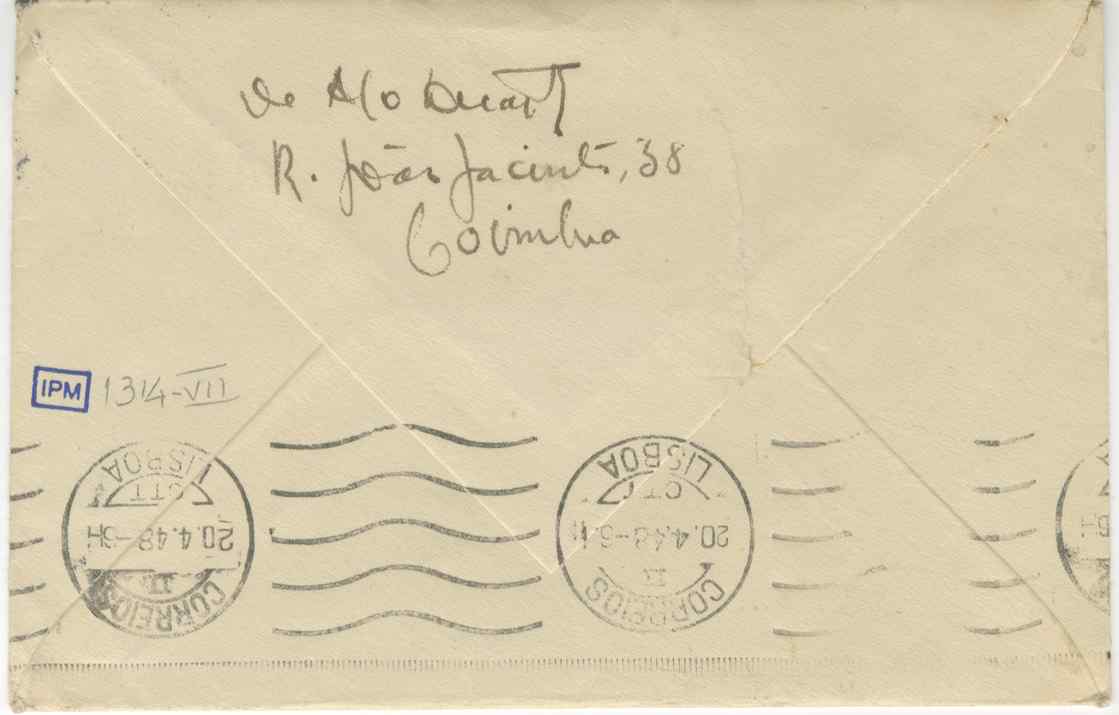 de A/o Duarte
R. João Jacinto, 38
Coimbra
IPM 1314-VII
LISBOA
CTT
20.4.48-6H
II
CORREIOS
LISBOA
CTT
20.4.48-6H
II
CORREIOS